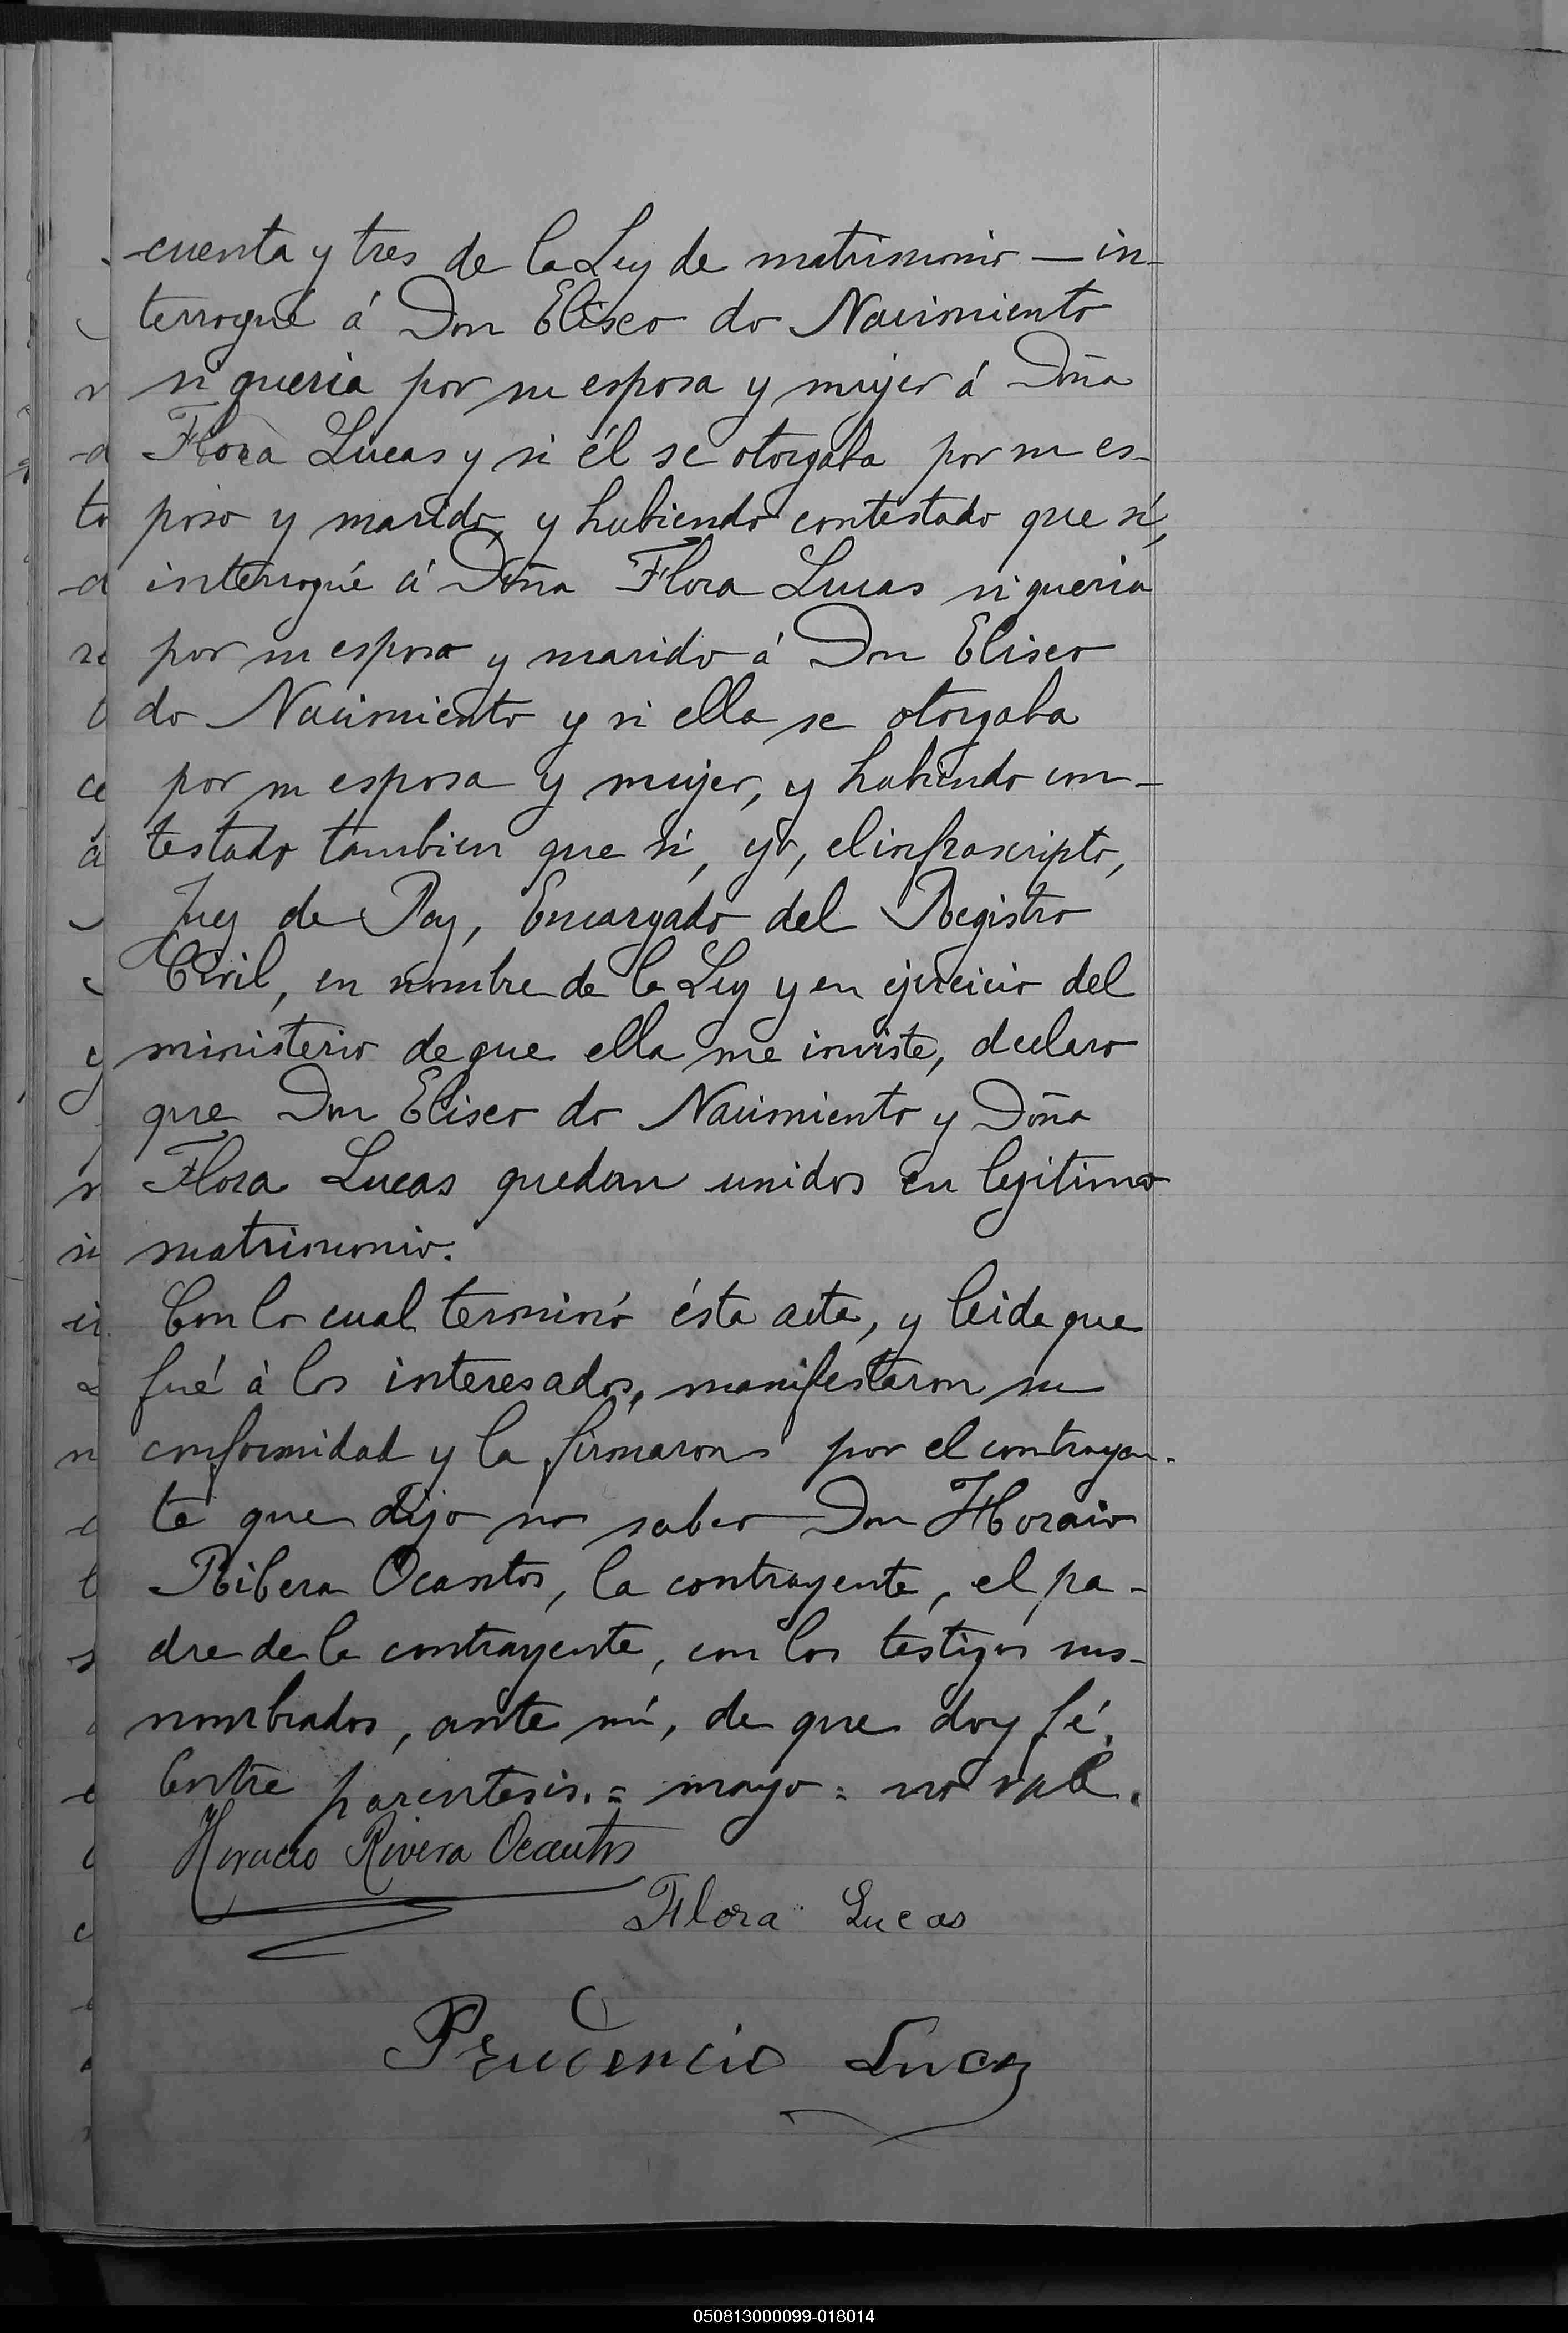 cuenta y tres de la Ley de matrimonio — in-
terrogué á Don Eliseo do Nacimiento
si queria por su esposa y mujer á Doña
Flora Lucas y si él se otorgaba por su es-
poso y marido, y habiendo contestado que sí,
interrogué á Doña Flora Lucas si queria
por su esposo y marido á Don Eliseo
do Nacimiento y si ella se otorgaba
por su esposa y mujer, y habiendo con-
testado tambien que sí, yo, el infrascripto,
Juez de Paz, Encargado del Registro
Civil, en nombre de la Ley y en ejercicio del
ministerio de que ella me inviste, declaro
que Don Eliseo do Nacimiento y Doña
Flora Lucas quedan unidos en legitimo
matrimonio.
Con lo cual terminó ésta acta, y leida que
fué à los interesados, manifestaron su
conformidad y la firmaron por el contrayen-
te que dijo no saber Don Horacio
Ribera Ocantos, la contrayente, el pa-
dre de la contrayente, con los testigos sus-
nombrados, ante mí, de que doy fé.
Entre parentesis. = mayo = no vale.
Horacio Rivera Ocantos
Flora Lucas
Prudencio Lucas
050813000099-018014